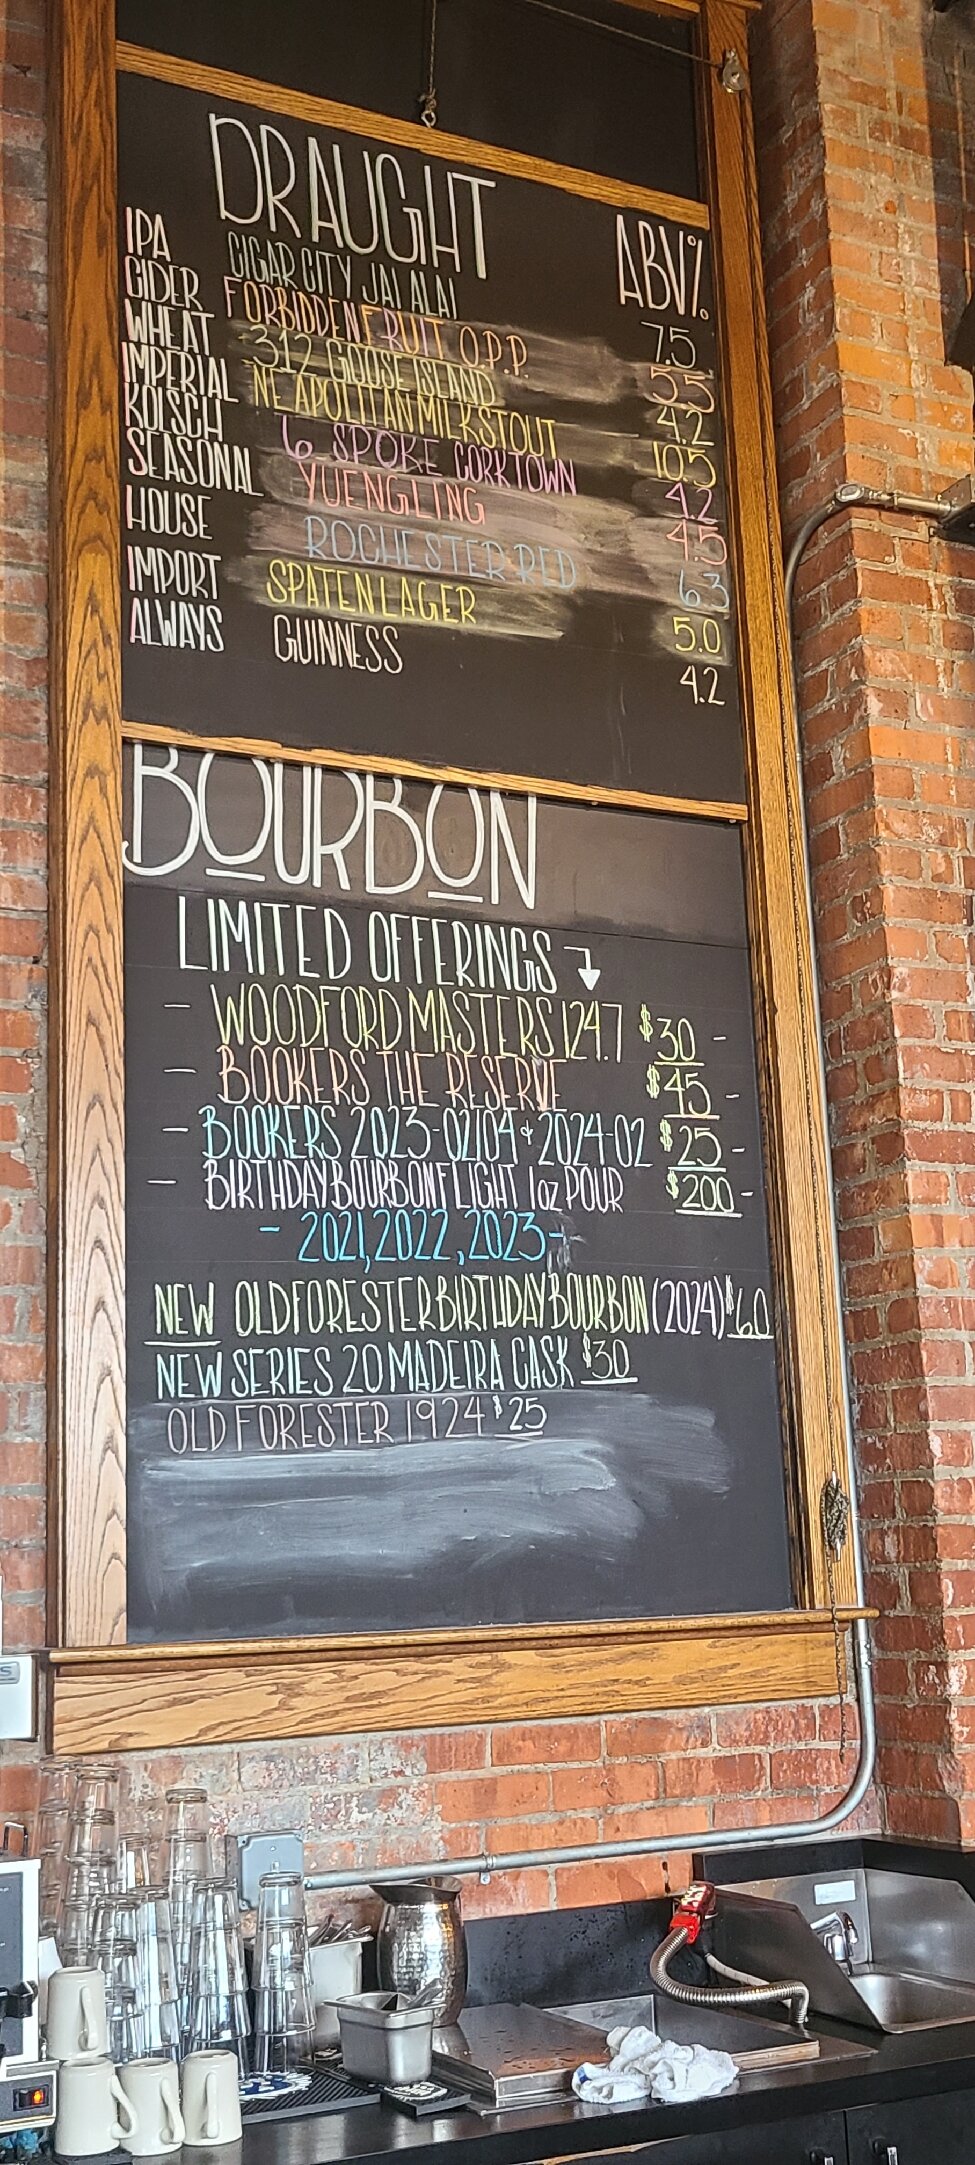 DRAUGHT ABV%
IPA CIGAR CITY JAI ALAI 7.5
CIDER FORBIDDEN FRUIT O.P.P. 5.5
WHEAT 312 GOOSE ISLAND 4.2
IMPERIAL NEAPOLITAN MILKSTOUT 10.5
KOLSCH 6 SPOKE CORKTOWN 4.2
SEASONAL YUENGLING 4.5
HOUSE ROCHESTER RED 6.3
IMPORT SPATEN LAGER 5.0
ALWAYS GUINNESS 4.2
BOURBON
LIMITED OFFERINGS
- WOODFORD MASTERS 124.7 $30 -
- BOOKERS THE RESERVE $45 -
- BOOKERS 2023-02/04 & 2024-02 $25 -
- BIRTHDAY BOURBON FLIGHT 1oz POUR $200 -
- 2021, 2022, 2023 -
NEW OLD FORESTER BIRTHDAY BOURBON (2024) $60
NEW SERIES 20 MADEIRA CASK $30
OLD FORESTER 1924 $25